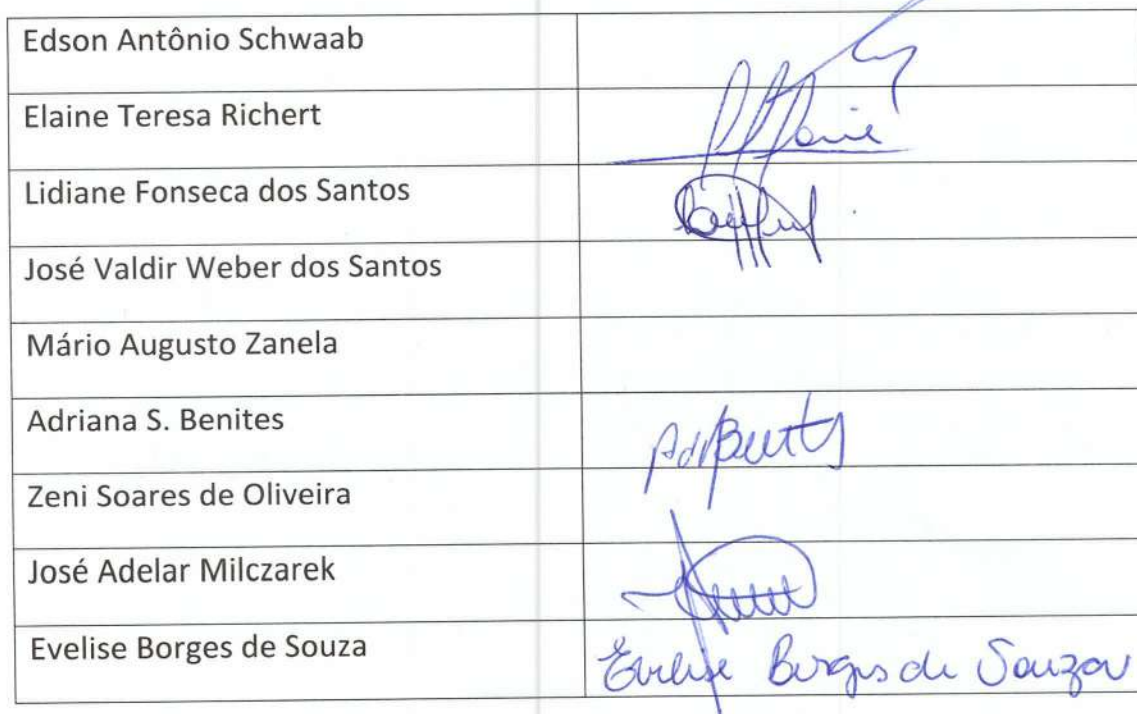 Edson Antônio Schwaab
Elaine Teresa Richert
Lidiane Fonseca dos Santos
José Valdir Weber dos Santos
Mário Augusto Zanela
Adriana S. Benites
Zeni Soares de Oliveira
José Adelar Milczarek
Evelise Borges de Souza Evelise Borges de Souza